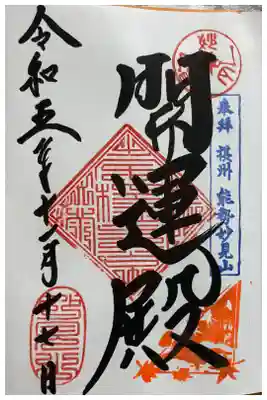 奉拝 摂州 能勢妙見山
開運殿
令和五年十一月十七日